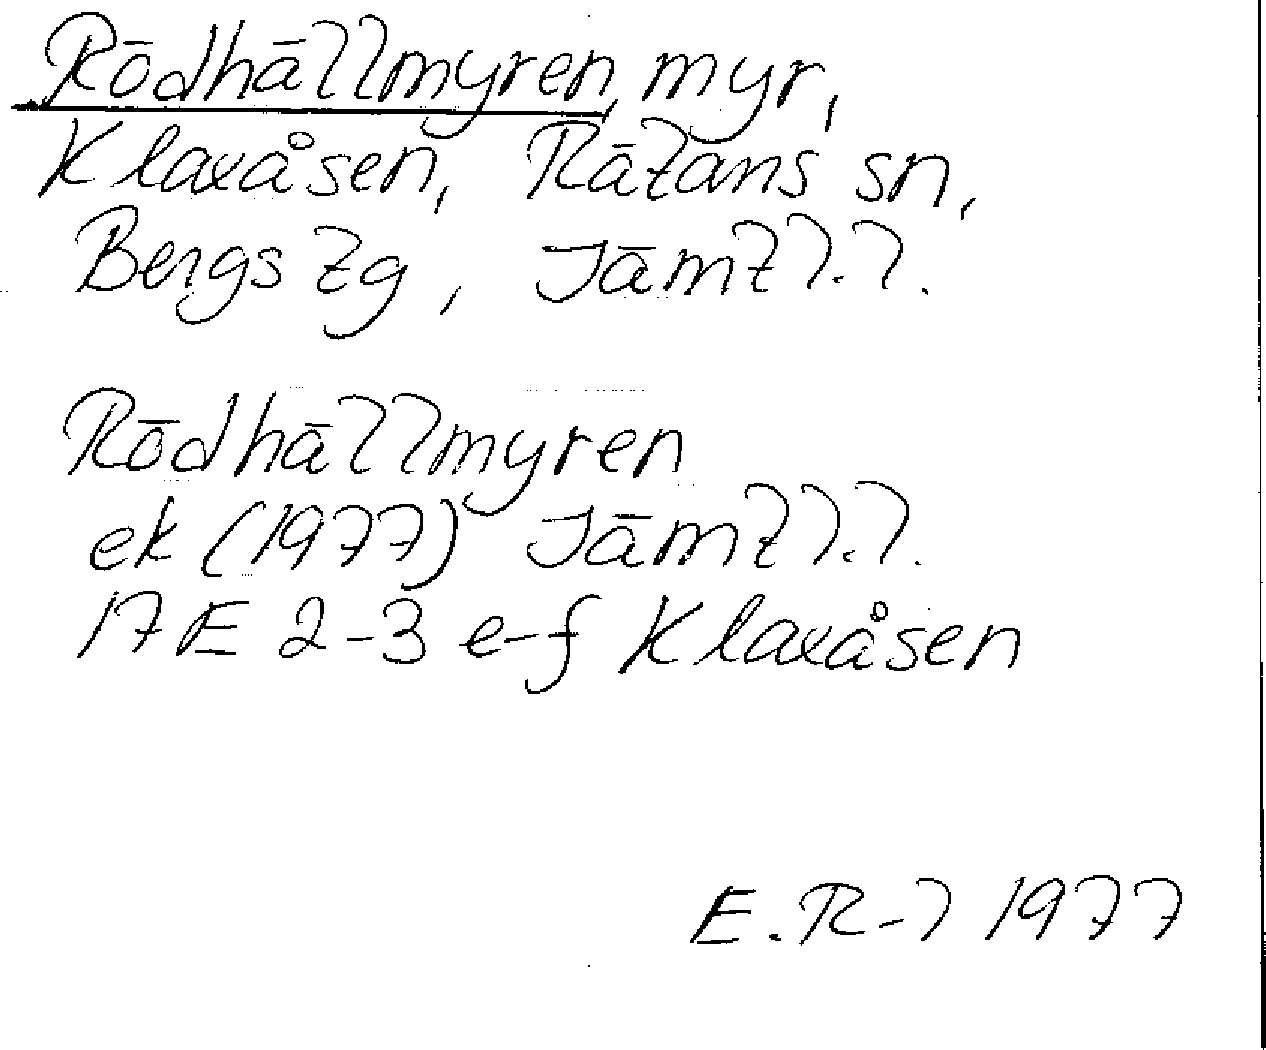 Rödhällmyren, myr,
Klaxåsen, Rätans sn,
Bergs tg, Jämtl.l.
Rödhällmyren
ek (1977) Jämtl.l.
17E 2-3 e-f Klaxåsen
E.R-l 1977